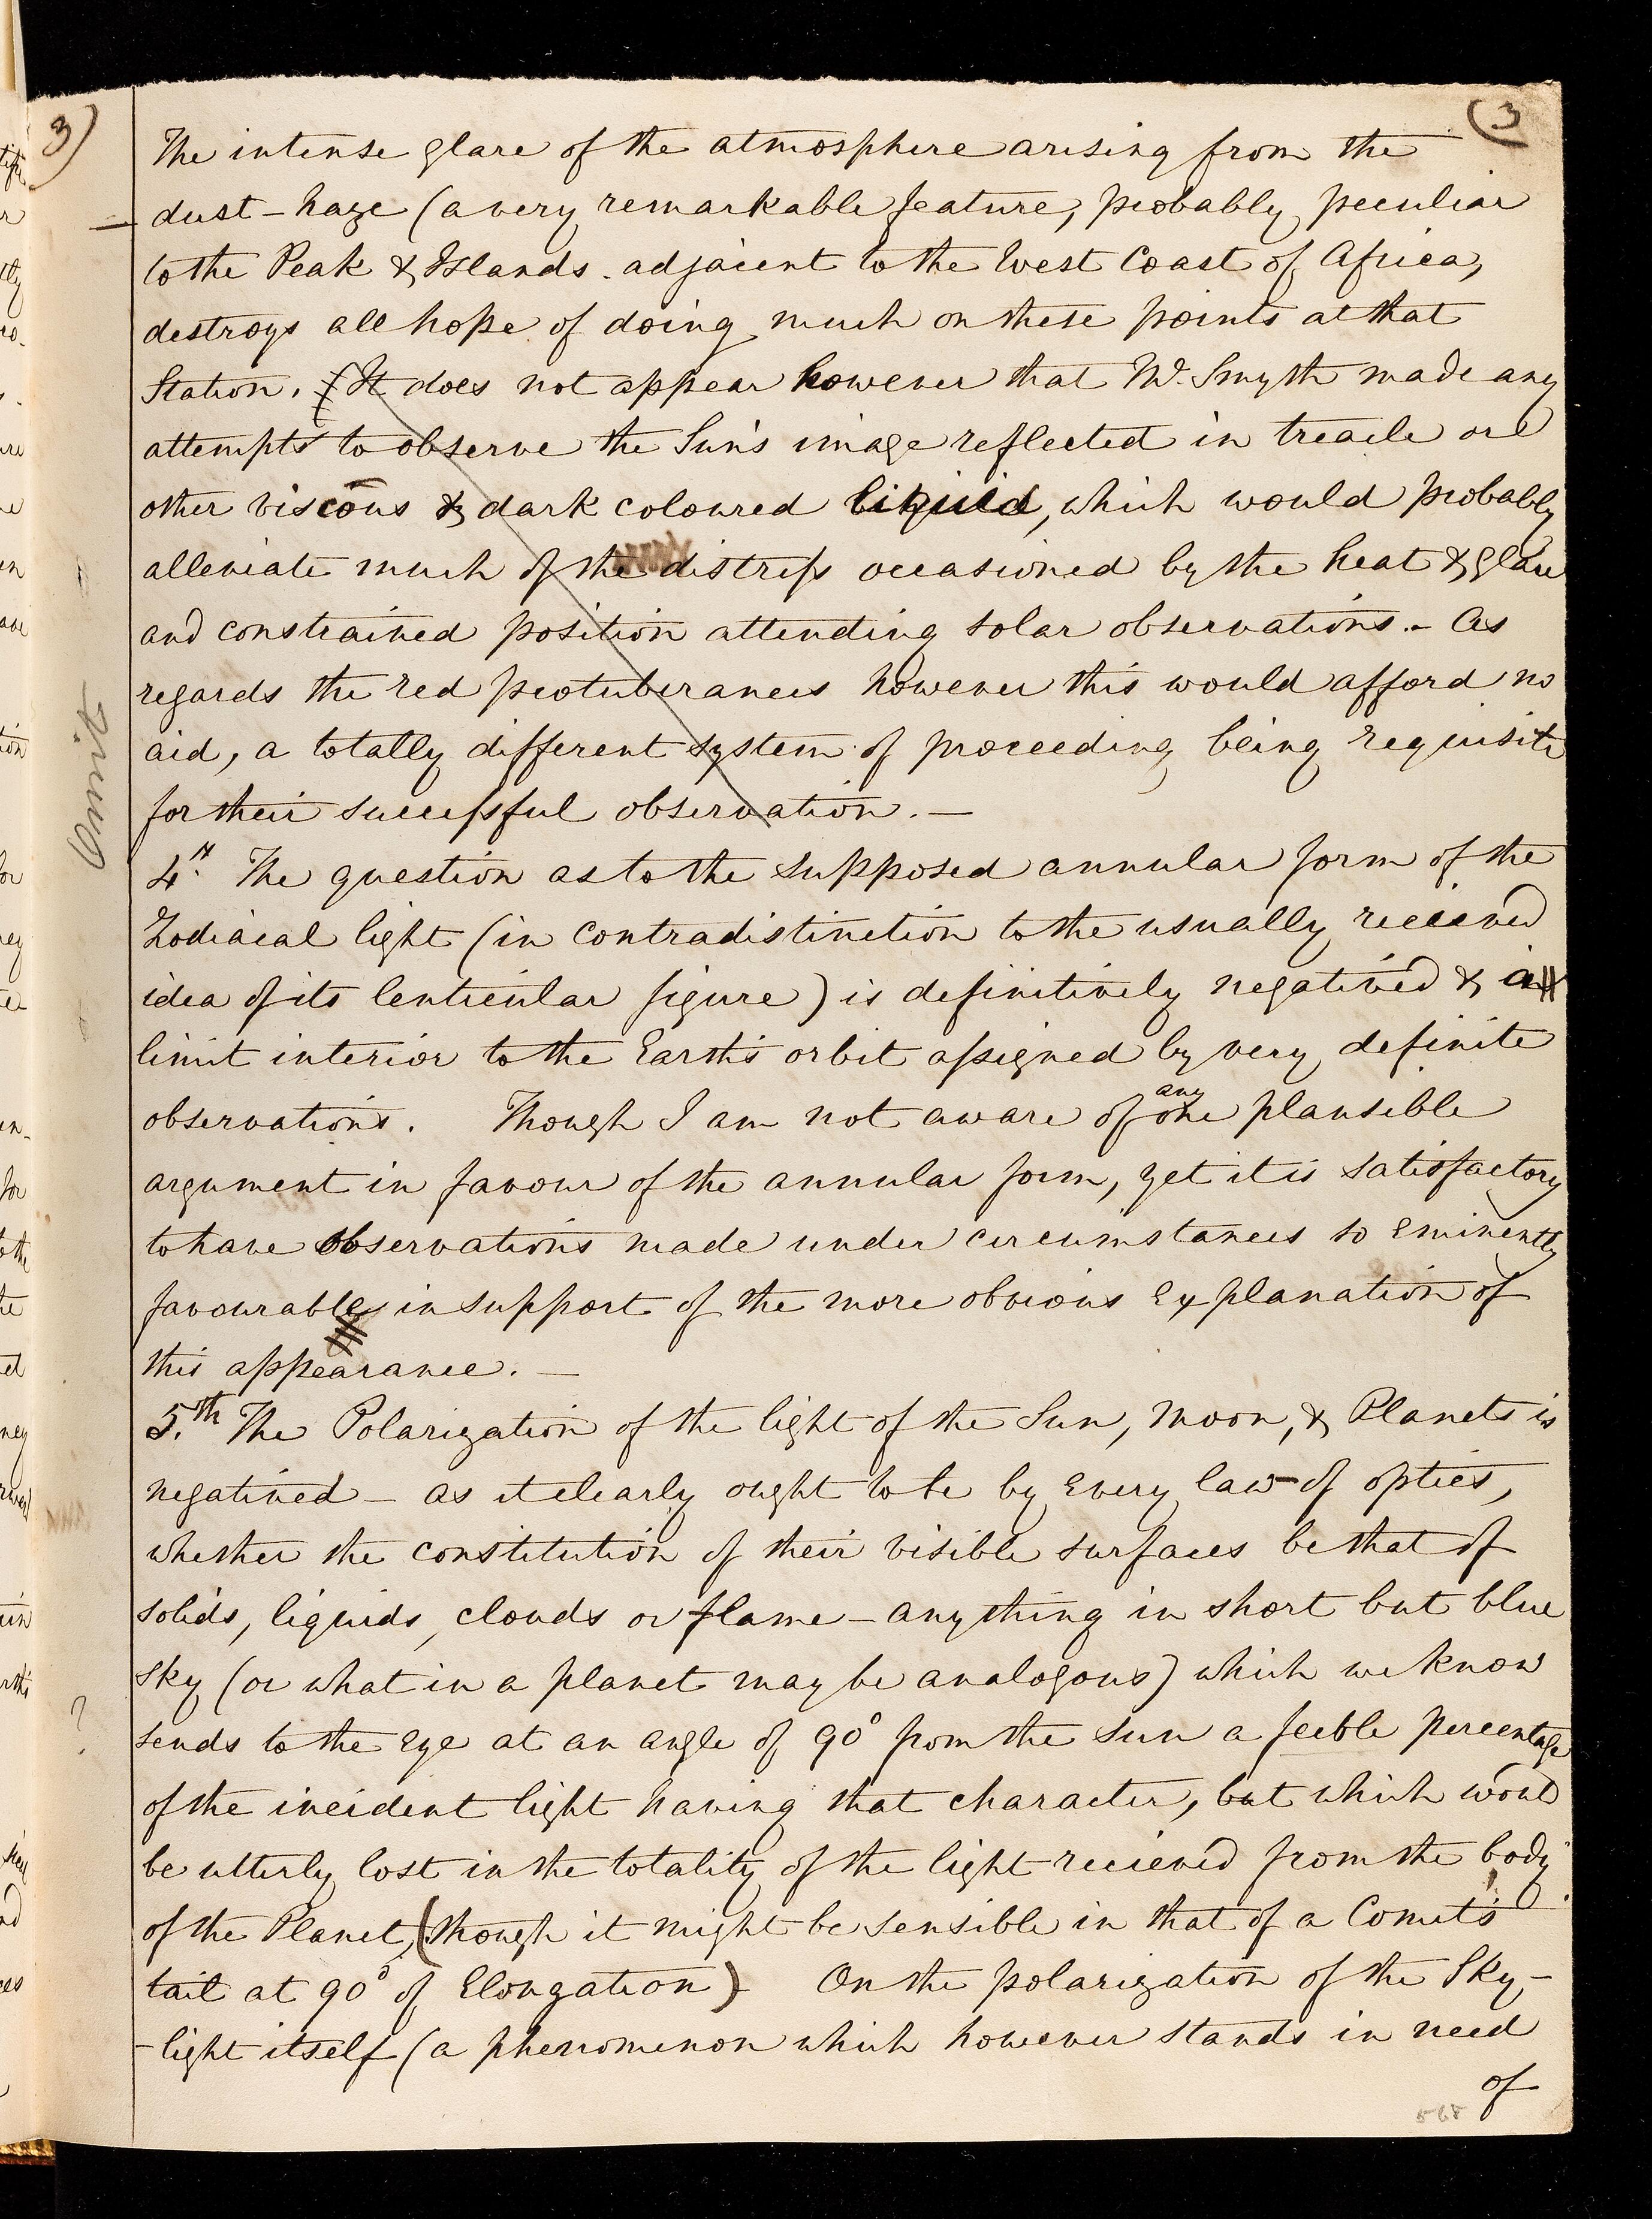 3)
(3
The intense glare of the atmosphere arising from the
dust-haze (a very remarkable feature, probably peculiar
to the Peak & Islands adjacent to the West Coast of Africa,
destroys all hope of doing much on these points at that
Station. (It does not appear however that Mr. Smyth made any
attempts to observe the Sun's image reflected in treacle or
other viscous & dark coloured liquid, which would probably
alleviate much of the distress occasioned by the heat & glare
and constrained position attending solar observations. - As
regards the red protuberances however this would afford no
aid, a totally different system of proceeding being requisite
for their successful observation. —
Omit
4th. The question as to the supposed annular form of the
Zodiacal light (in contradistinction to the usually received
idea of its lenticular figure) is definitively negatived & a
limit interior to the Earth's orbit assigned by very definite
any
observations. Though I am not aware of one plausible
argument in favour of the annular form, yet it is satisfactory
to have observations made under circumstances so eminently
favourable in support of the more obvious explanation of
this appearance. —
5.th The Polarization of the light of the Sun, Moon, & Planets is
negatived — as it clearly ought to be by every law of optics,
whether the constitution of their visible surfaces be that of
solids, liquids, clouds or flame — anything in short but blue
sky (or what in a planet may be analogous) which we know
?
sends to the eye at an angle of 90° from the sun a feeble percentage
of the incident light having that character, but which would
be utterly lost in the totality of the light received from the body
of the Planet, (though it might be sensible in that of a Comet's
tail at 90° of Elongation) On the polarization of the Sky-
-light itself (a phenomenon which however stands in need
of
568